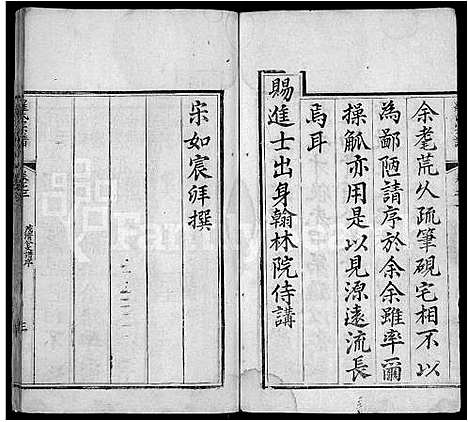 余耄荒久疏筆硯宅相不以
為鄙陋請序於余余雖率爾
操觚亦用是以見源遠流長
焉耳
賜進士出身翰林院侍講
宋如宸拜撰
三